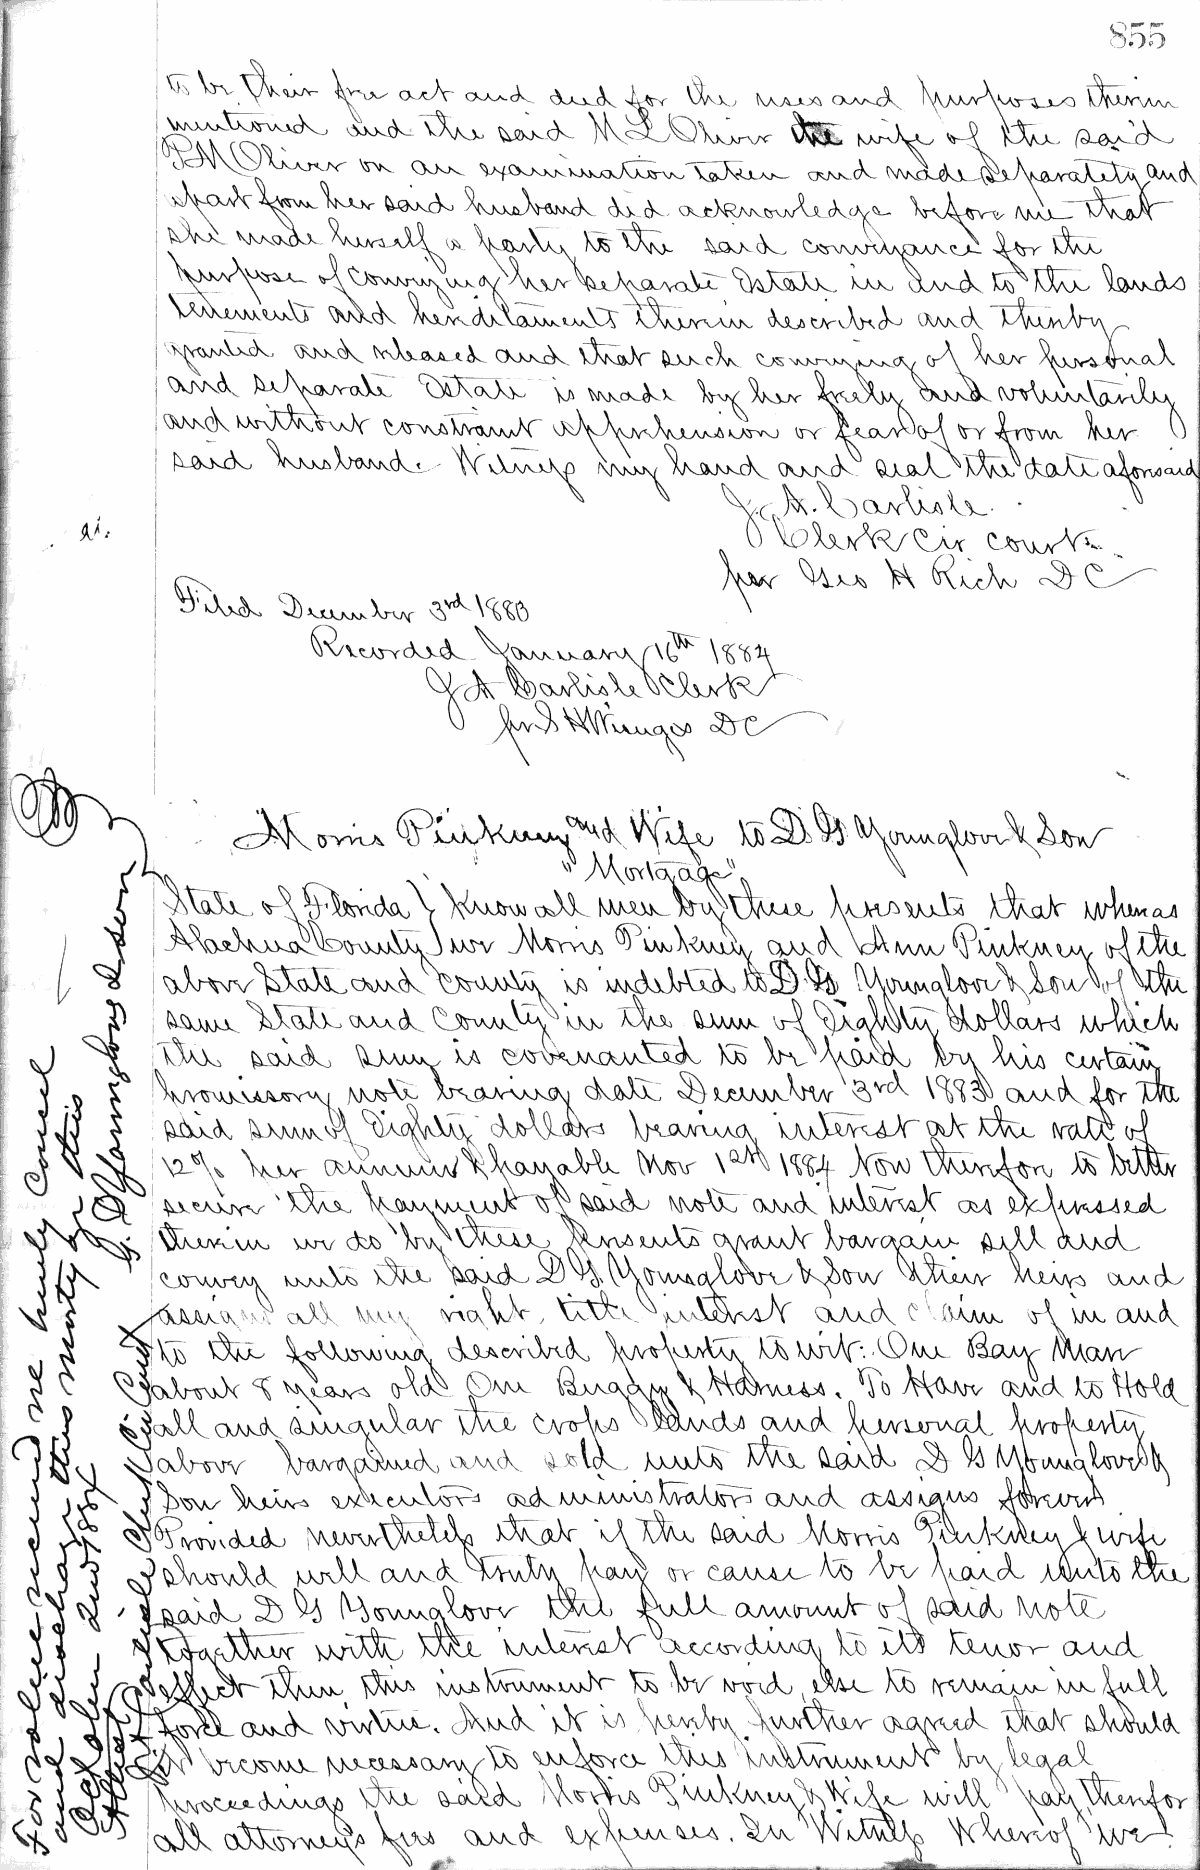 855
to be their free act and deed for the uses and purposes therein
mentioned and the said M L Oliver the wife of the said
P M Oliver on an examination taken and made separately and
apart from her said husband did acknowledge before me that
she made herself a party to the said conveyance for the
purpose of conveying her separate Estate in and to the lands
tenements and hereditaments therein described and thereby
granted and released and that such conveying of her personal
and separate Estate is made by her freely and voluntarily
and without constraint apprehension or fear of or from her
said husband. Witness my hand and seal the date aforesaid
J. A. Carlisle
Clerk Cir court
per Geo H Rich D C
Filed December 3rd 1883
Recorded January 16th 1884
J A Carlisle Clerk
per S H Wienges D C
Morris Pinkney and Wife to D G Younglove & Son
"Mortgage"
State of Florida } Know all men by these presents that whereas
Alachua County } we Morris Pinkney and Ann Pinkney of the
above State and County is indebted to D. G Younglove & Son of the
same State and County in the sum of Eighty dollars which
the said sum is covenanted to be paid by his certain
promissory note bearing date December 3rd 1883 and for the
said sum of Eighty dollars bearing interest at the rate of
12% per annum & payable Nov 1st 1884 Now therefore to better
secure the payment of said note and interest as expressed
therein we do by these presents grant bargain sell and
convey unto the said D G Younglove & Son their heirs and
assigns all my right, title interest and claim of in and
to the following described property to wit: One Bay Mare
about 8 years old One Buggy & Harness. To Have and to Hold
all and singular the crops lands and personal property
above bargained and sold unto the said D G Younglove &
Son heirs executors administrators and assigns forever
Provided nevertheless that if the said Morris Pinkney & wife
should well and truly pay or cause to be paid unto the
said D G Younglove the full amount of said note
together with the interest according to its tenor and
effect then this instrument to be void, else to remain in full
force and virtue. And it is hereby further agreed that should
it become necessary to enforce this instrument by legal
proceedings the said Morris Pinkney & Wife will pay therefor
all attorneys fees and expenses. In Witness Whereof we
For value received we hereby Cancel
and discharge this mortgage this
October 2nd 1884
G. D Younglove & Son
Attest J A Carlisle Clerk Cir Court